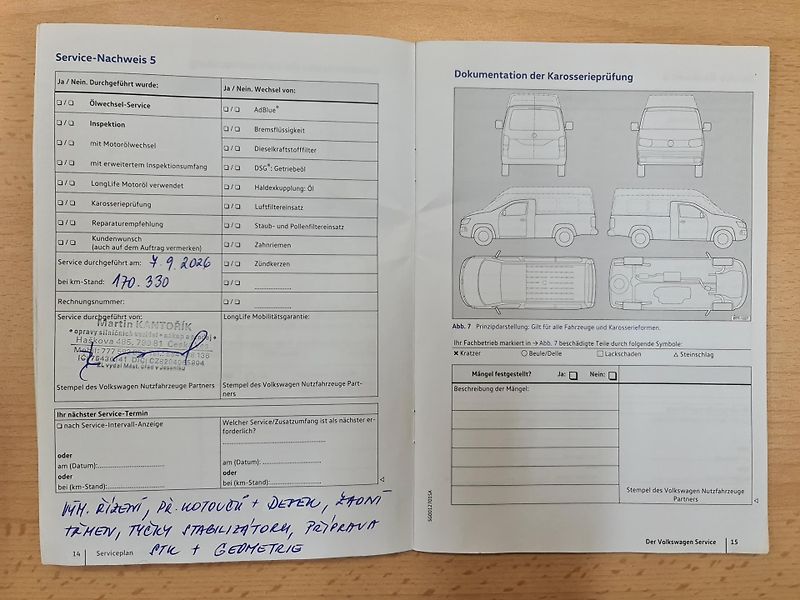 Service-Nachweis 5
Ja / Nein. Durchgeführt wurde:
Ja / Nein. Wechsel von:
❏ / ❏ Ölwechsel-Service
❏ / ❏ AdBlue®
❏ / ❏ Inspektion
❏ / ❏ Bremsflüssigkeit
❏ / ❏ mit Motorölwechsel
❏ / ❏ Dieselkraftstofffilter
❏ / ❏ mit erweitertem Inspektionsumfang
❏ / ❏ DSG®: Getriebeöl
❏ / ❏ LongLife Motoröl verwendet
❏ / ❏ Haldexkupplung: Öl
❏ / ❏ Karosserieprüfung
❏ / ❏ Luftfiltereinsatz
❏ / ❏ Reparaturempfehlung
❏ / ❏ Staub- und Pollenfiltereinsatz
❏ / ❏ Kundenwunsch
(auch auf dem Auftrag vermerken)
❏ / ❏ Zahnriemen
Service durchgeführt am: 7.9.2026
❏ / ❏ Zündkerzen
bei km-Stand: 170.330
❏ / ❏
Rechnungsnummer:
❏ / ❏
Service durchgeführt von:
LongLife Mobilitätsgarantie:
Martin KANTOŘÍK
• opravy silničních vozidel •
Haškova 485, 790 81 Česk
Mobil: 777
DIČ: CZ8204065894
vydal Měst. úřad v Jeseníku
Stempel des Volkswagen Nutzfahrzeuge Partners
Stempel des Volkswagen Nutzfahrzeuge Part-
ners
Ihr nächster Service-Termin
❏ nach Service-Intervall-Anzeige
Welcher Service/Zusatzumfang ist als nächster er-
forderlich?
oder
am (Datum):
am (Datum):
oder
oder
bei (km-Stand):
bei (km-Stand):
VÝM. ŘÍZENÍ, PŘ. KOTOUČŮ + DESEK, ZADNÍ
TŘMEN, TYČKY STABILIZÁTORU, PŘÍPRAVA
STK + GEOMETRIE
14 Serviceplan
Dokumentation der Karosserieprüfung
Abb. 7 Prinzipdarstellung: Gilt für alle Fahrzeuge und Karosserieformen.
Ihr Fachbetrieb markiert in → Abb. 7 beschädigte Teile durch folgende Symbole:
✕ Kratzer ○ Beule/Delle □ Lackschaden △ Steinschlag
Mängel festgestellt? Ja: ❏ Nein: ❏
Beschreibung der Mängel:
Stempel des Volkswagen Nutzfahrzeuge
Partners
SG0012701SA
Der Volkswagen Service 15